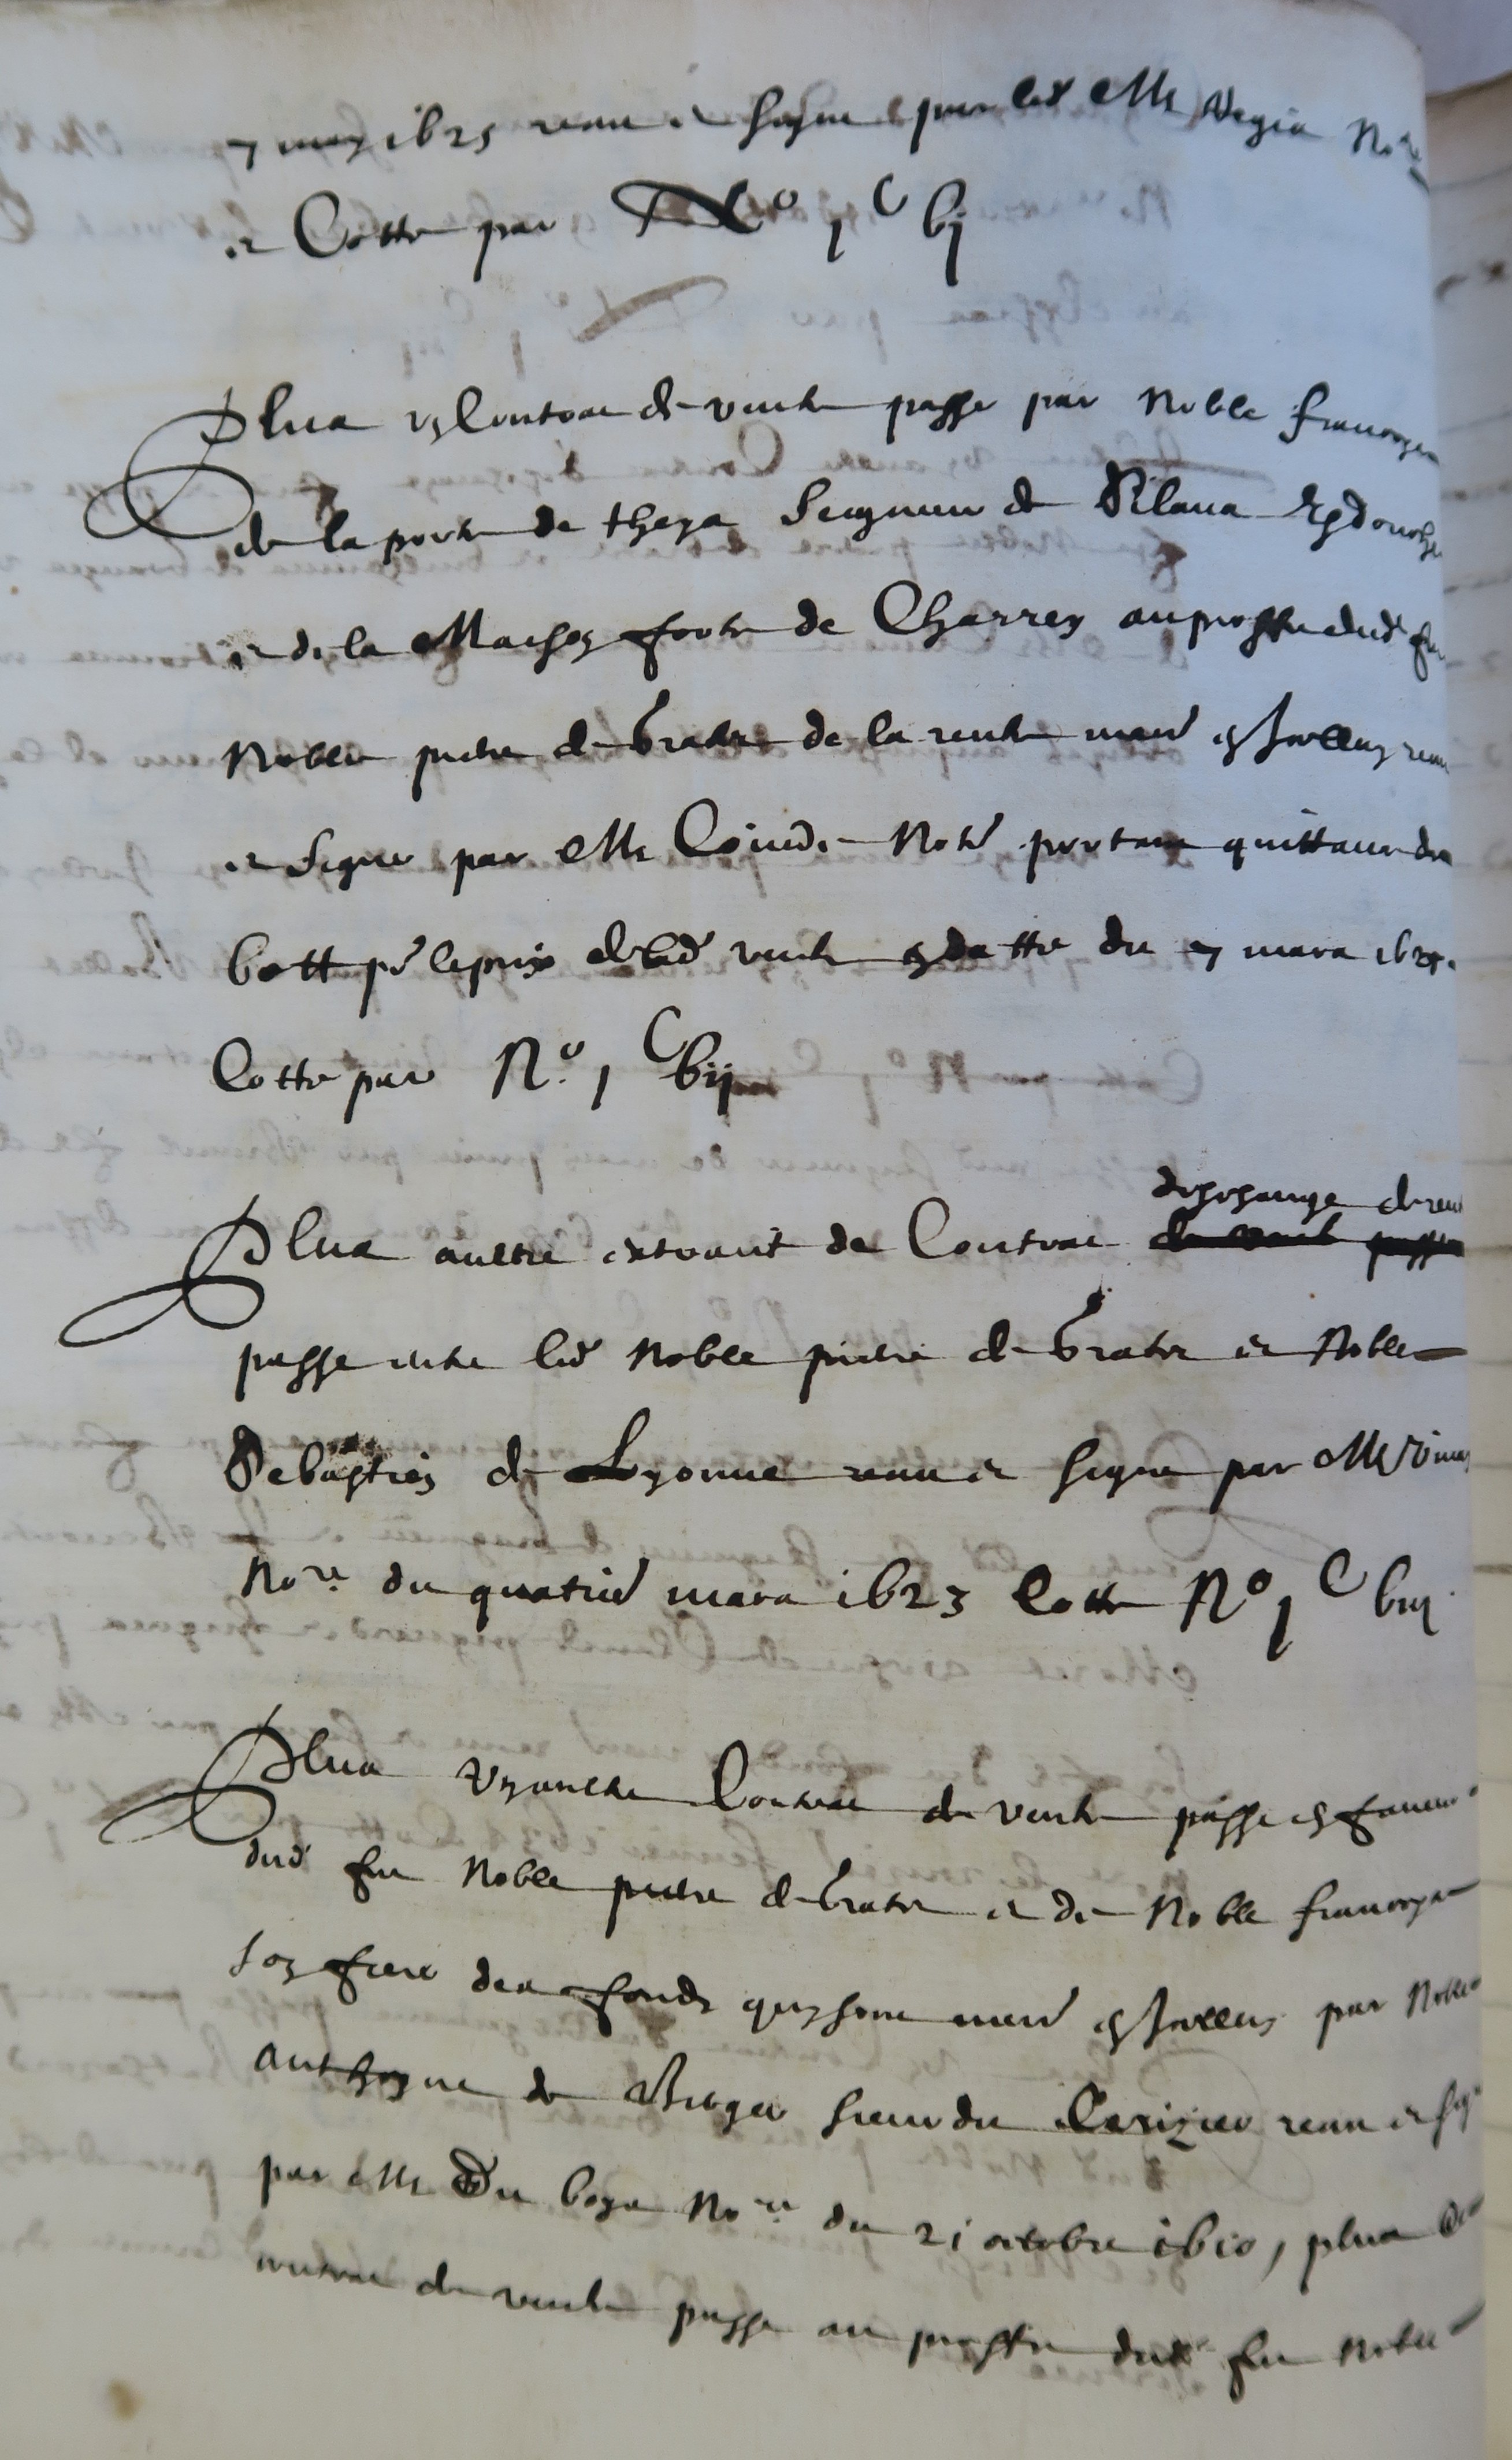 7 may 1625 receu et signe par led Me Vegis Nore
et Cotte par No 1 C bj
Plus un Contrac de vente passe par Noble francoys
de la porte de theys Seigneur de Silans
et de la Maison forte de Charrey au proffit dud feu
Noble pierre de Brates de la rente mend en receu
et Signe par Me Noted portant quittance de
pd le prix de lad vente en datte du 7 mars 1625
Cotte par No 1 C bij
Plus aultre extraict de Contrac de vente passe
deschange de
passe entre led Noble pierre de Brates et Noble
Sebastien de Lyonne receu et signe par Me
Nore du quatried mars 1623 Cotte No 1 C biij
Plus un aultre Contrac de vente passe en faveur
dud feu Noble pierre de Brates et de Noble francoys
son frere des fonds quy sont mend en par Noble
anthoyne de sieur du Cerizier receu et sig
par Me Du boys Nore du 21 octobre 1610, plus
contrac de vente passe au proffit dud feu Noble